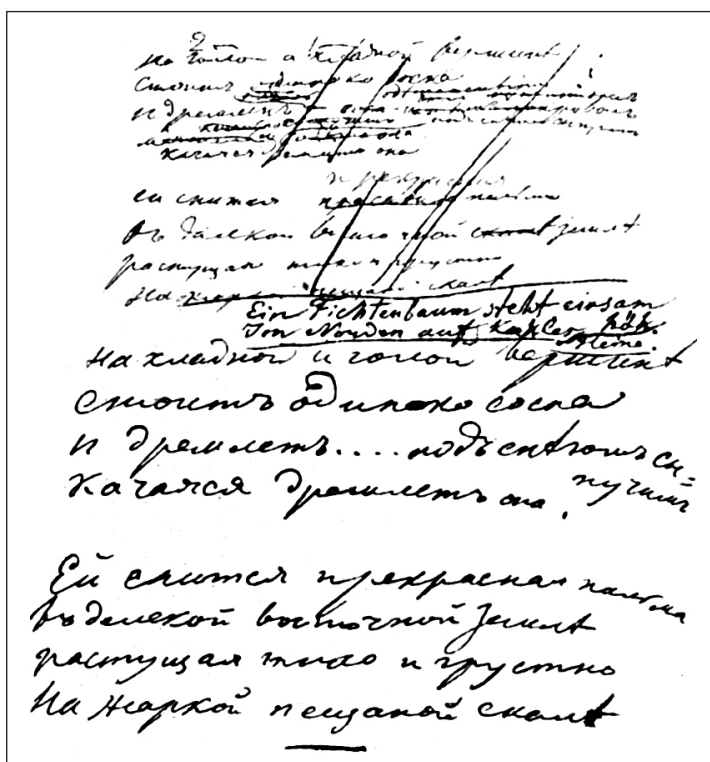 на голой и хладной вершинѣ
стоитъ одиноко сосна
и дремлетъ
качаяся дремлетъ она
ей снится прекрасная пальма
въ далекой восточной землѣ
растущая тихо и грустно
на жаркой пещаной скалѣ
Ein Fichtenbaum steht einsam
Im Norden auf kahler Höh.
На хладной и голой вершинѣ
стоитъ одиноко сосна
и дремлетъ.... подъ снѣгомъ сы=
пучимъ
качаяся дремлетъ она.
Ей снится прекрасная пальма
въ далекой восточной землѣ
растущая тихо и грустно
На жаркой пещаной скалѣ